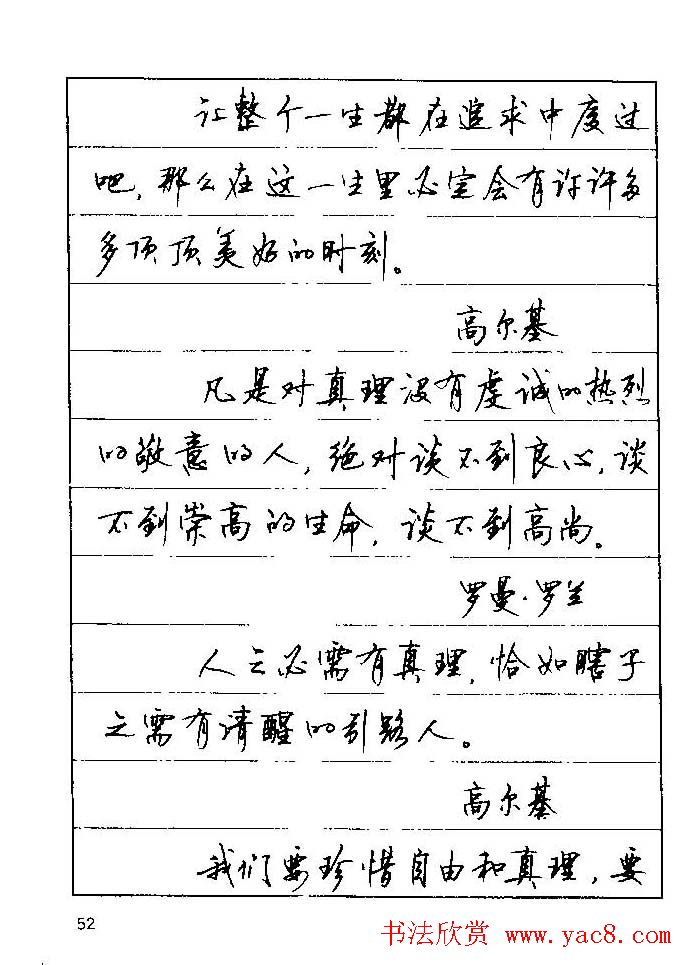 让整个一生都在追求中度过
吧，那么在这一生里必定会有许许多
多顶顶美好的时刻。
高尔基
凡是对真理没有虔诚的热烈
的敬意的人，绝对谈不到良心，谈
不到崇高的生命，谈不到高尚。
罗曼·罗兰
人之必需有真理，恰如瞎子
之需有清醒的引路人。
高尔基
我们要珍惜自由和真理，要
52
书法欣赏 www.yac8.com